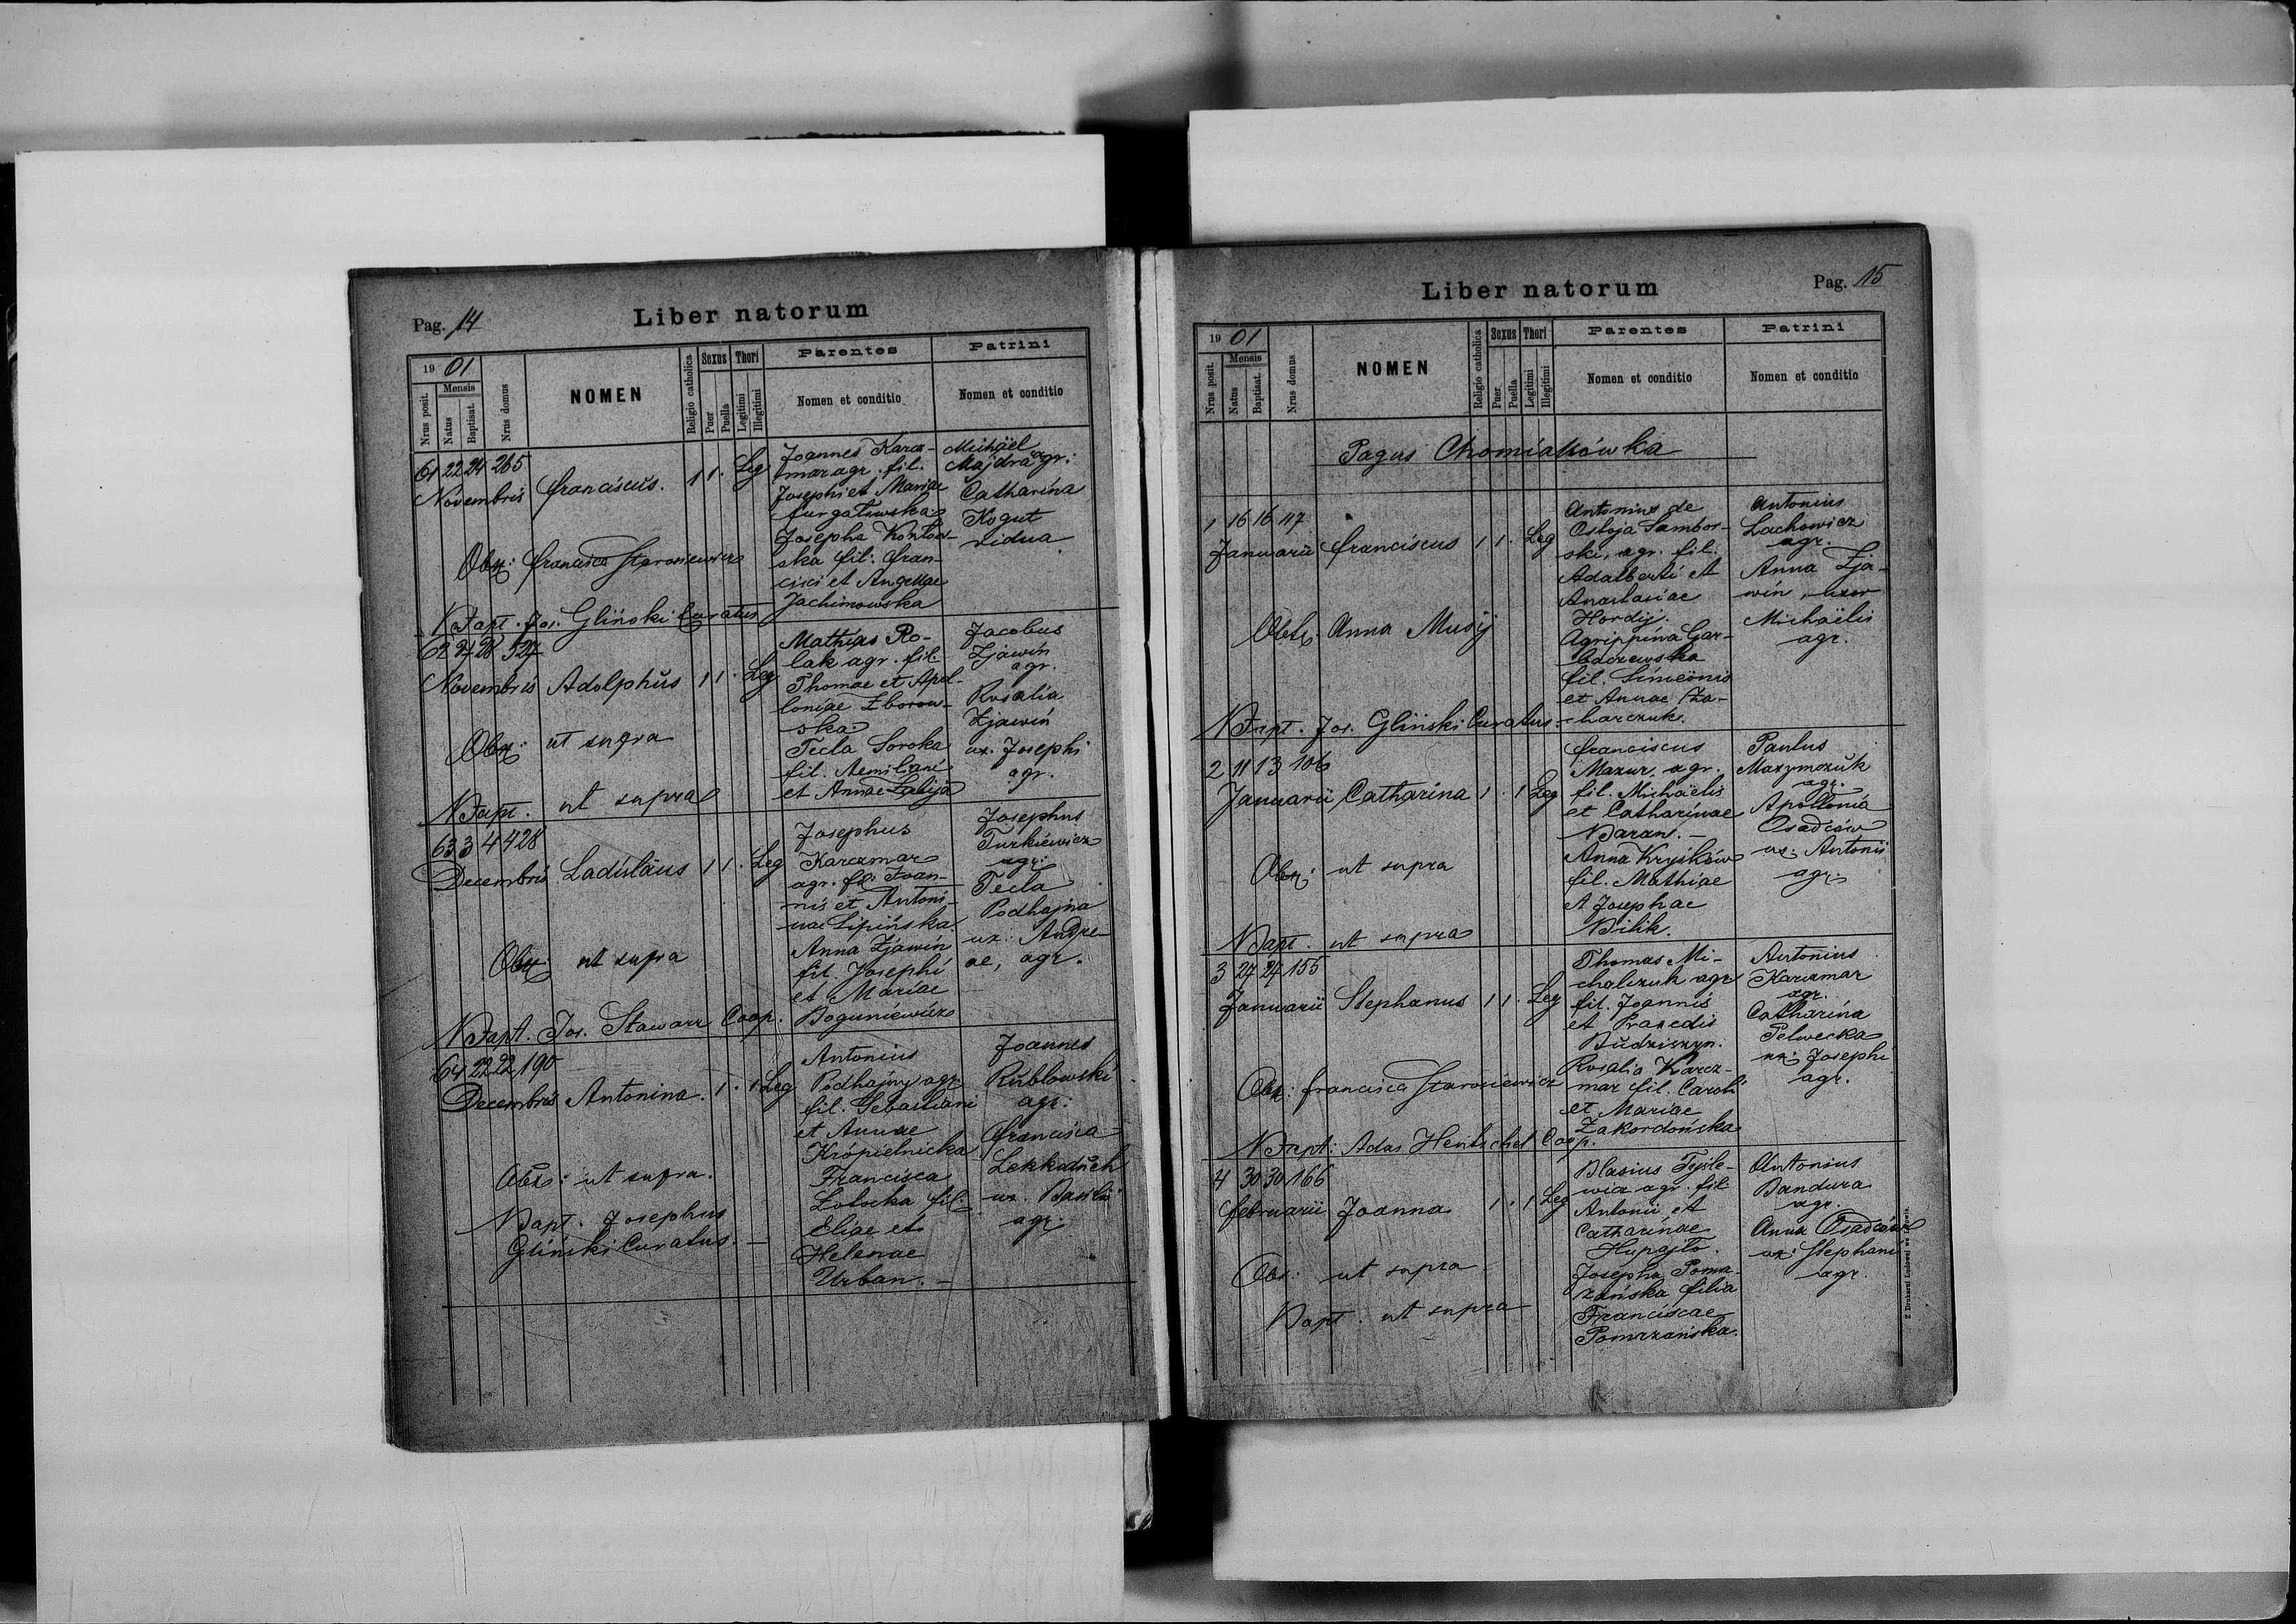 Pag. 14
Liber natorum
1901
Nrus posit.
Mensis
Natus
Baptisat.
Nrus domus
NOMEN
Religio catholica
Sexus
Puer
Puella
Thori
Legitimi
Illegitimi
Parentes
Nomen et conditio
Patrini
Nomen et conditio
61 22 24 265
Novembris Franciscus. 1 1 . Leg
Obst: Francisca Starosiewicz
Bapt. Jos. Gliński Curatus
Joannes Karcz-
mar agr. fil.
Josephi et Mariae
Josepha
ska fil: Fran-
cisci et Angelae
Jachimowska
Michäel
Majdra agr:
Catharina
Kogut
vidua
62 27 28 527
Novembris Adolphus 1 1 . Leg
Obst: ut supra
Bapt. ut supra
Mathias Ro-
lak agr. fil.
Thomae et Apol-
loniae Zborow-
ska
Tecla Soroka
fil. Aemiliani
et Annae
Jacobus
Zjawin
agr.
Rosalia
Zjawin
ux. Josephi
agr.
63 3 4 428
Decembris Ladislaus 1 1 . Leg
Obst: ut supra
Bapt. Jos. Stawarz Coop.
Josephus
Karczmar
agr. fil: Ioan-
nis et Antoni-
nae Lipińska.
Anna Zjawin
fil. Josephi
et Mariae
Boguniewicz
Josephus
Turkiewicz
agr:
Tecla
Podhajna
ux: Andre-
ae, agr.
64 22 22 190
Decembris Antonina. 1 . 1 Leg
Obst: ut supra.
Bapt. Josephus
Gliński Curatus. —
Antonius
Podhajny agr
fil. Sebastiani
et Annae
Kropielnicka
Francisca
Zotocka fil.
Eliae et
Helenae
Urban. —
Joannes
Rubłowski
agr:
Francisca
ux. Basilii
agr.
Liber natorum
Pag. 15
1901
Nrus posit.
Mensis
Natus
Baptisat.
Nrus domus
NOMEN
Religio catholica
Sexus
Puer
Puella
Thori
Legitimi
Illegitimi
Parentes
Nomen et conditio
Patrini
Nomen et conditio
Pagus Chomiakówka
1 16 16 117
Januarii Franciscus 1 1 . Leg
Obst. Anna Musij
Bapt. Jos. Gliński Curatus.
Antonius de
Ostoja Sambor-
ski, agr. fil.
Adalberti et
Anastasiae
Hordij.
Agrippina Gar-
baczewska
fil. Simeonis
et Annae Za-
harczuk.
Antonius
Lachowicz
agr.
Anna Zja-
win, uxor
Michäelis
agr.
2 11 13 106
Januarii Catharina 1 . 1 Leg
Obst: ut supra
Bapt. ut supra
Franciscus
Mazur, agr.
fil. Michäelis
et Catharinae
Baran. —
Anna Kryśków
fil. Mathiae
et Josephae
Bilik.
Paulus
Maxymczuk
agr.
Apollonia
Osadców
ux: Antonii
agr.
3 27 27 155
Januarii Stephanus 1 1 . Leg
Obst: Francisca Starosiewicz
Bapt: Adas Hentschel Coop.
Thomas Mi-
chalczuk agr
fil. Joannis
et Praxedis
Budziszyn.
Rosalia Karcz-
mar fil. Caroli
et Mariae
Zakordońska
Antonius
Karczmar
agr.
Catharina
Pelwecka
ux: Josephi
agr.
4 30 30 166
Februarii Joanna 1 . 1 Leg
Obst: ut supra
Bapt. ut supra
Blasius Tysle-
wicz agr. fil.
Antonii et
Catharinae
Hupajło.
Josepha Pomr-
zańska filia
Franciscae
Pomrzańska.
Antonius
Bandura
agr.
Anna Osadców
ux: Stephani
agr.
Z Drukarni Ludowej we Lwowie.